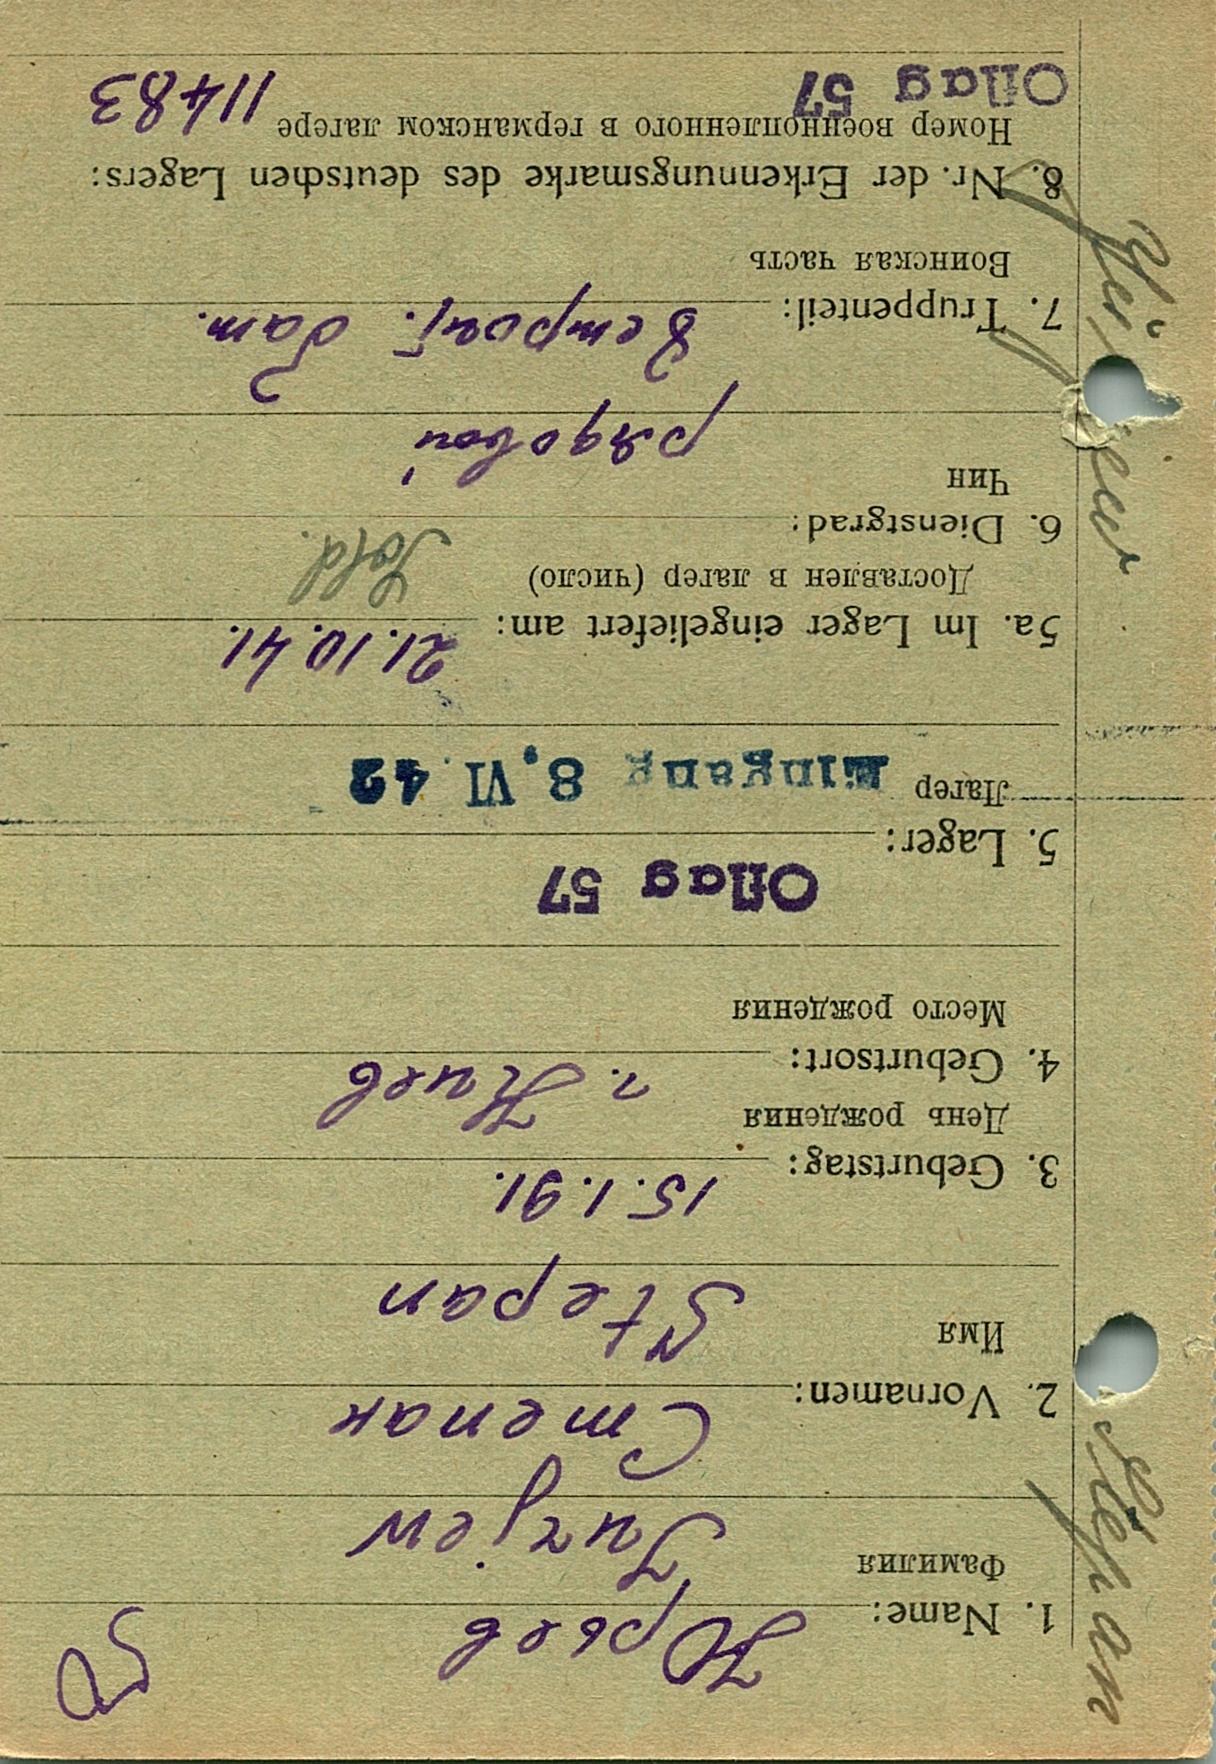 1. Name: Юрьев
Фамилия
Jurjew
2. Vornamen: Степан
Имя
Stepan
3. Geburtstag: 15.1.91.
День рождения
4. Geburtsort: г. Киев
Место рождения
Oflag 57
5. Lager:
Лагер Eingang 8. VI. 42
5a. Im Lager eingeliefert am: 21.10.41.
Доставлен в лагер (число)
6. Dienstgrad: Sold.
Чин
рядовой
7. Truppenteil: бат.
Воинская часть
8. Nr. der Erkennungsmarke des deutschen Lagers:
Номер военнопленного в германском лагере 11483
Oflag 57
Stepan